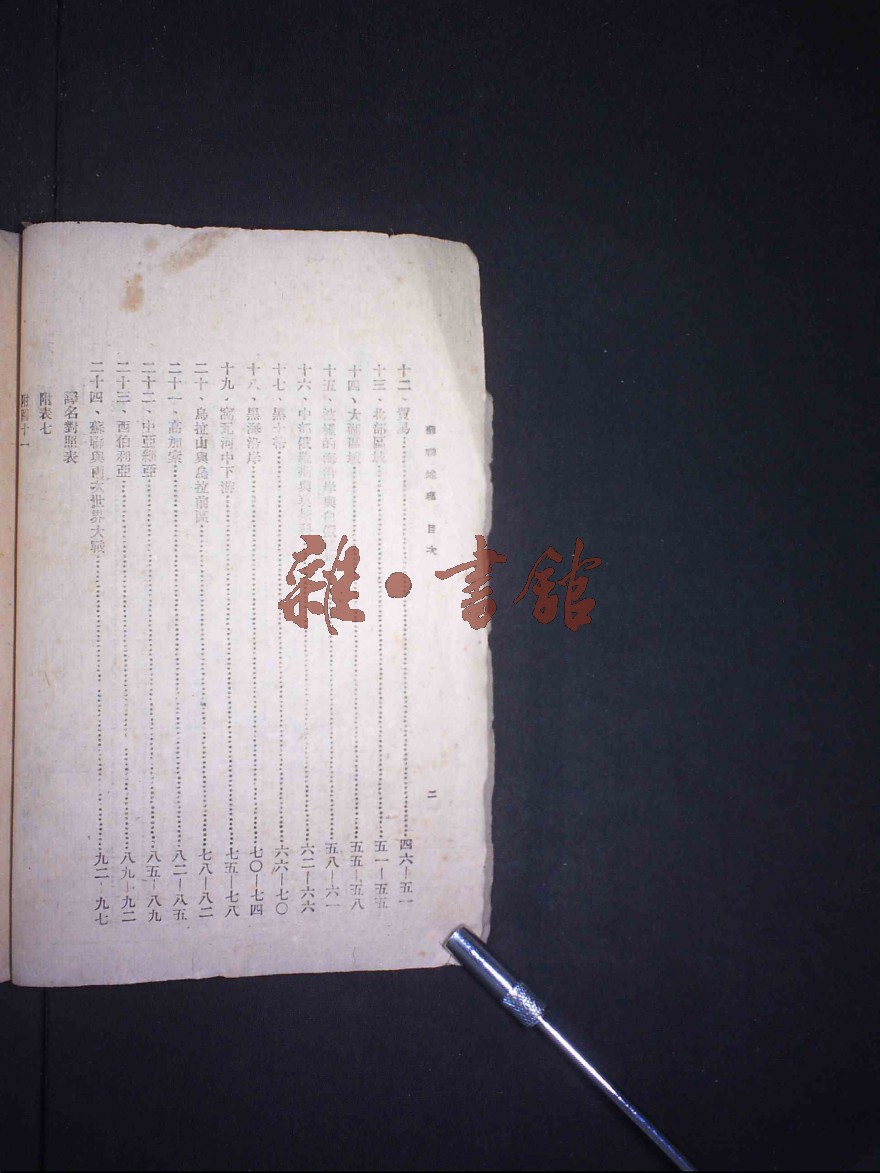 蘇聯地理 目次
二
十二、貿易⋯⋯四六—五一
十三、北部區域⋯⋯五一—五五
十四、大湖區域⋯⋯五五—五八
十五、波羅的海沿岸與白俄⋯⋯五八—六一
十六、中部俄羅斯與⋯⋯六二—六六
十七、黑土帶⋯⋯六六—七〇
十八、黑海沿岸⋯⋯七〇—七四
十九、窩瓦河中下游⋯⋯七五—七八
二十、烏拉山與烏拉前區⋯⋯七八—八二
二十一、高加索⋯⋯八二—八五
二十二、中亞細亞⋯⋯八五—八九
二十三、西伯利亞⋯⋯八九—九二
二十四、蘇聯與兩次世界大戰⋯⋯九二—九七
譯名對照表
附表七
附圖十一
雜·書館